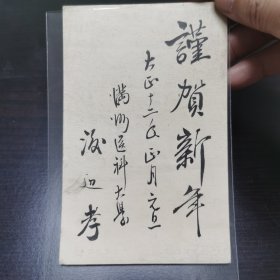 謹賀新年
大正十二年正月元旦
満洲医科大學
渡辺孝